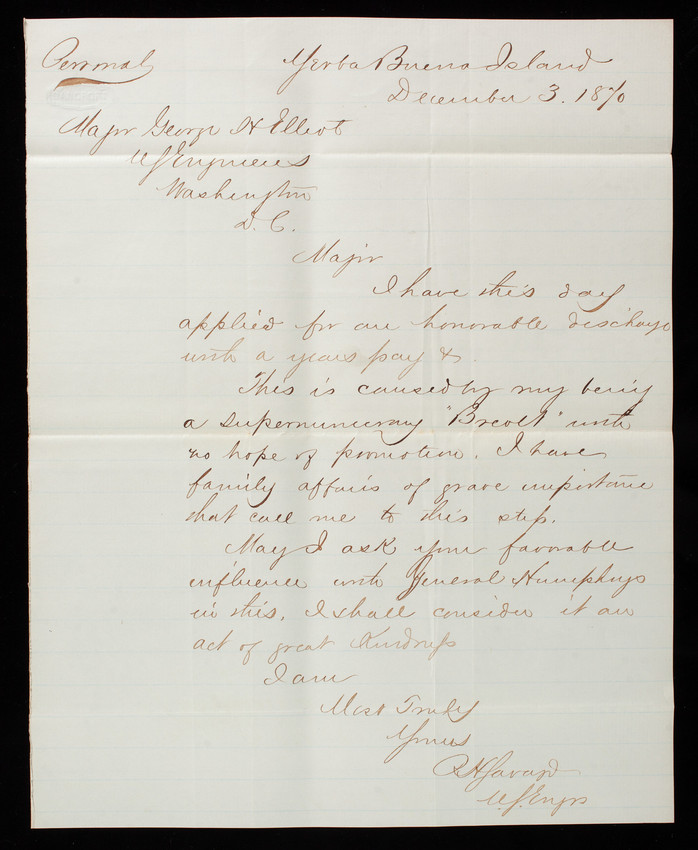 Personal
Yerba Buena Island
December 3. 1870
Major George H Elliot
US Engineers
Washington
D. C.
Major
I have this day
applied for an honorable discharge
with a years pay &.
This is caused by my being
a supernumeray "Brevet" with
no hope of promotion. I have
family affairs of grave importance
that call me to this step.
May I ask your favorable
influence with General Humphreys
in this. I shall consider it an
act of great Kindness
I am
Most Truly
Yours
R H Savage
U.S. Engrs